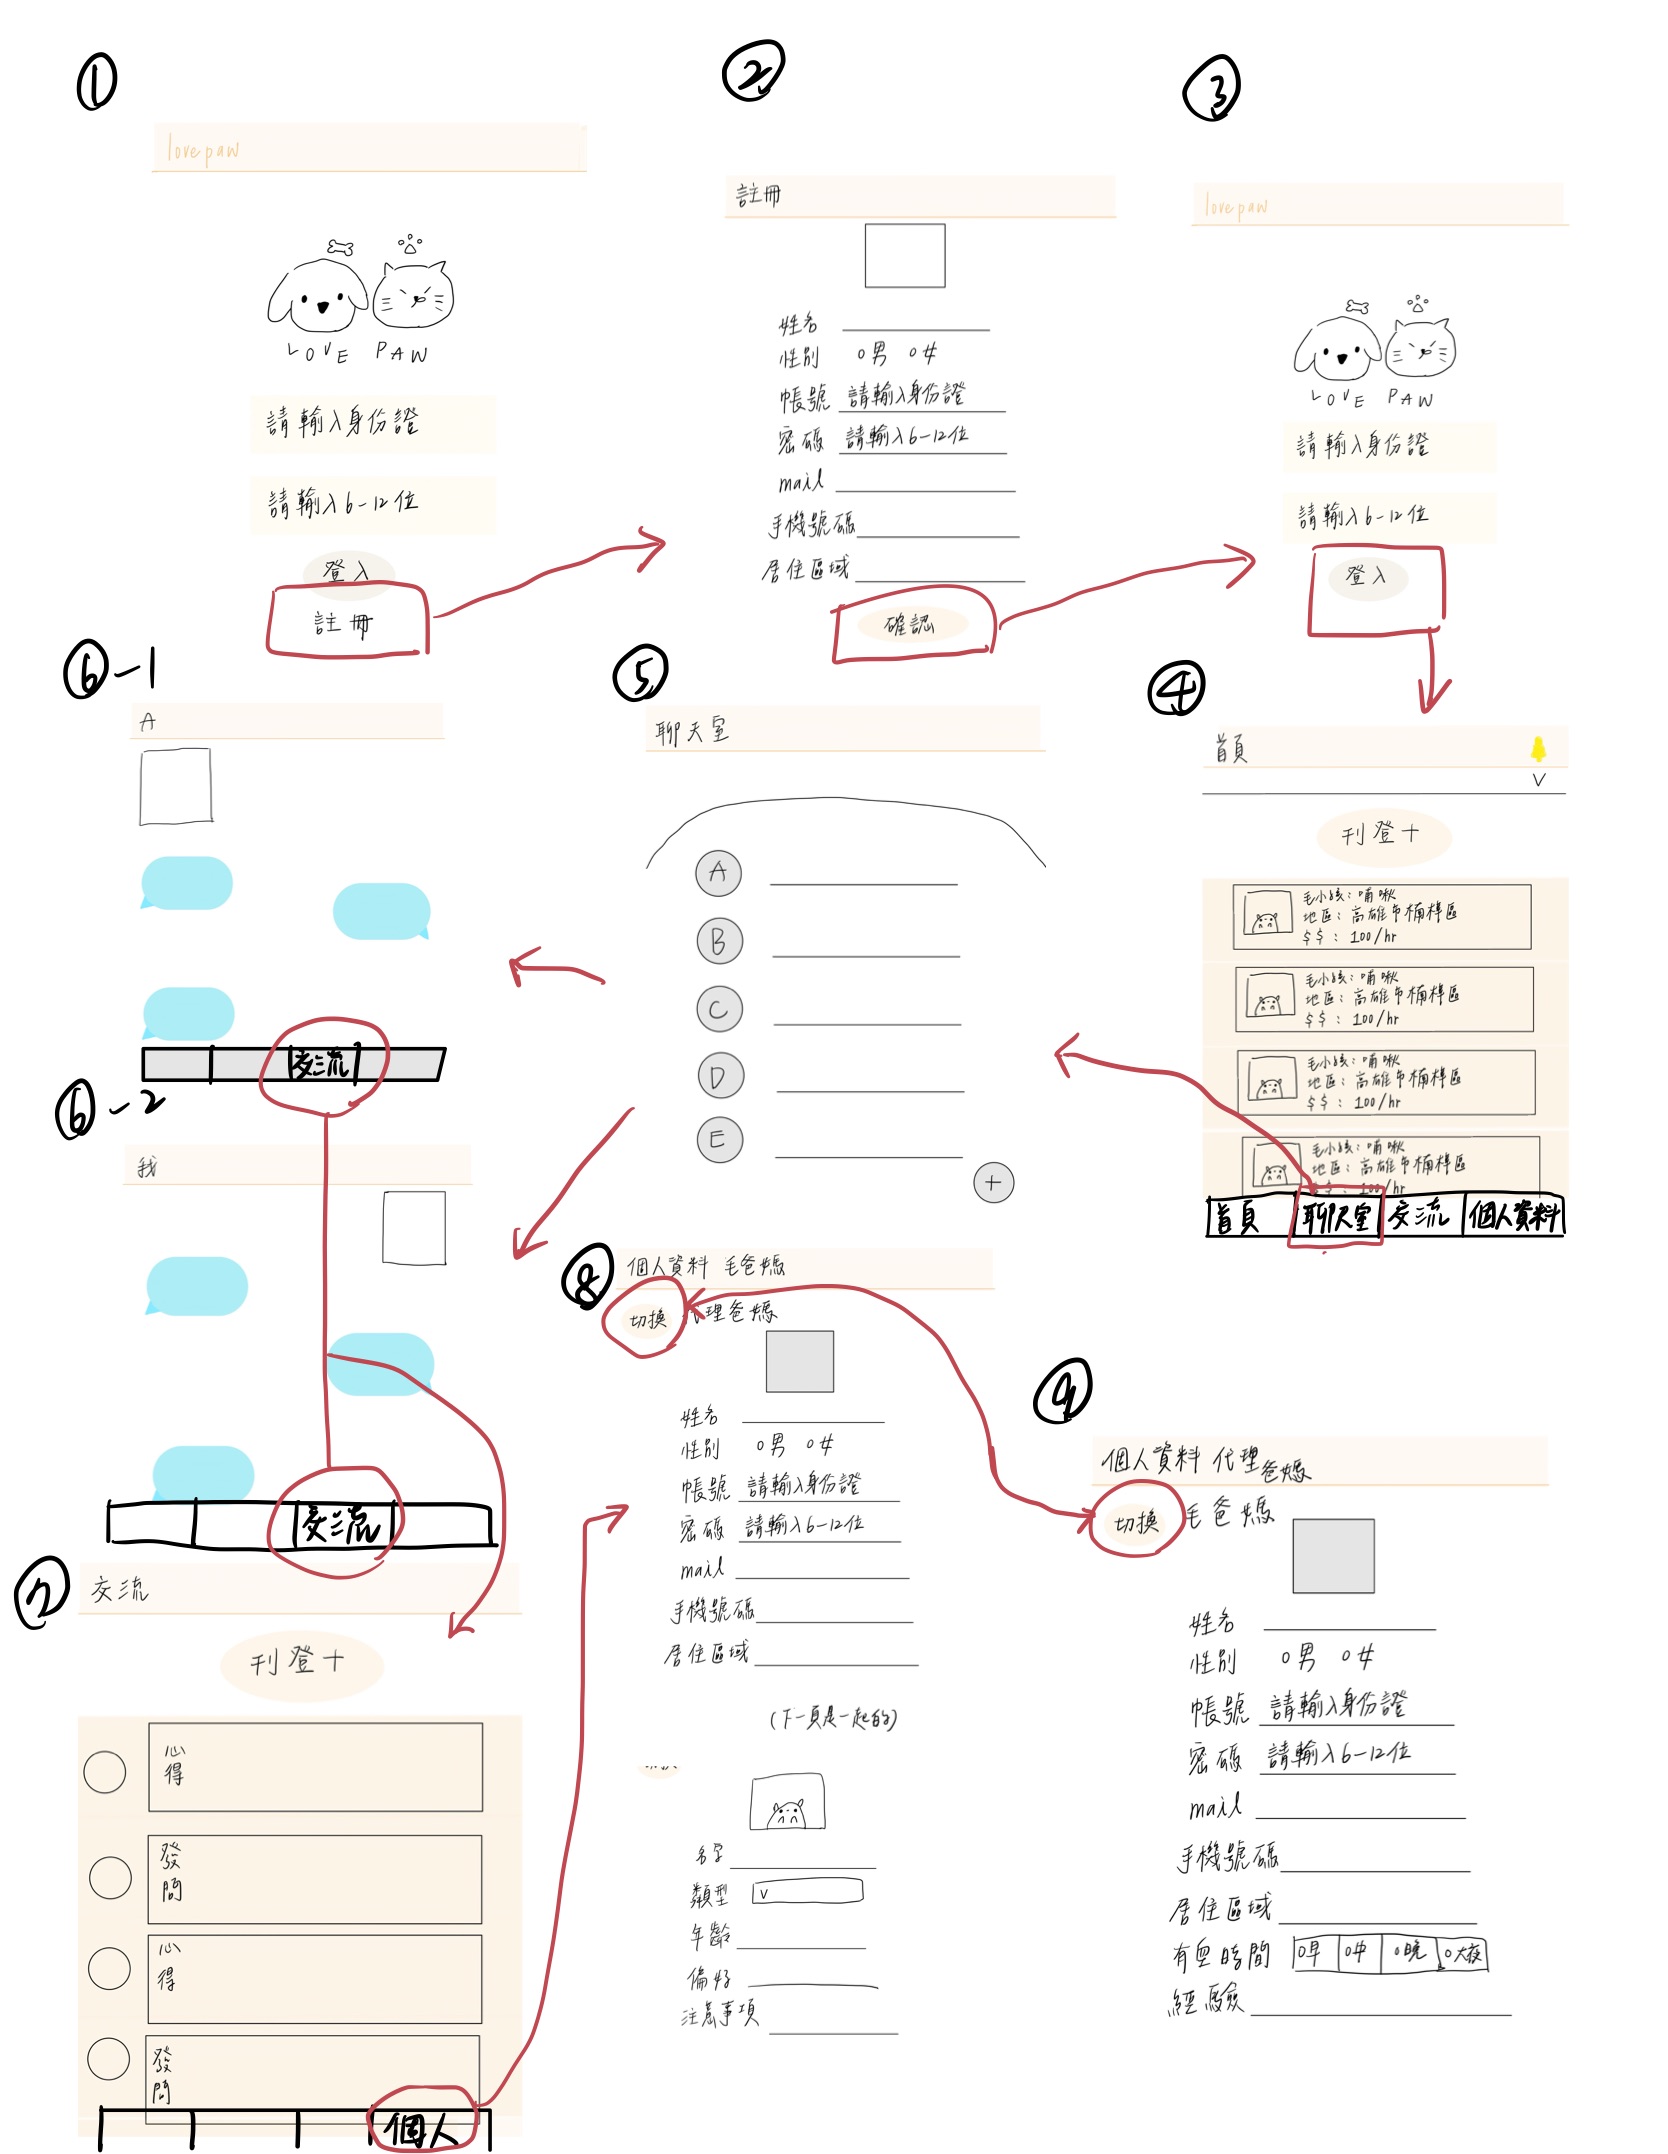 ①
lovepaw
LOVE PAW
請輸入身份證
請輸入6-12位
登入
註冊
②
註冊
姓名
性別 男 女
帳號 請輸入身份證
密碼 請輸入6-12位
mail
手機號碼
居住區域
確認
③
lovepaw
LOVE PAW
請輸入身份證
請輸入6-12位
登入
④
首頁
V
刊登+
毛小孩：喃啾
地區：高雄市楠梓區
$$：100/hr
毛小孩：喃啾
地區：高雄市楠梓區
$$：100/hr
毛小孩：喃啾
地區：高雄市楠梓區
$$：100/hr
毛小孩：喃啾
地區：高雄市楠梓區
$$：100/hr
首頁 聊天室 交流 個人資料
⑤
聊天室
A
B
C
D
E
+
⑥-1
A
交流
⑥-2
我
交流
⑦
交流
刊登+
心得
發問
心得
發問
個人
⑧
個人資料 毛爸媽
切換 代理爸媽
姓名
性別 男 女
帳號 請輸入身份證
密碼 請輸入6-12位
mail
手機號碼
居住區域
(下一頁是一起的)
名字
類型 V
年齡
偏好
注意事項
⑨
個人資料 代理爸媽
切換 毛爸媽
姓名
性別 男 女
帳號 請輸入身份證
密碼 請輸入6-12位
mail
手機號碼
居住區域
有空時間 早 中 晚 大夜
經驗